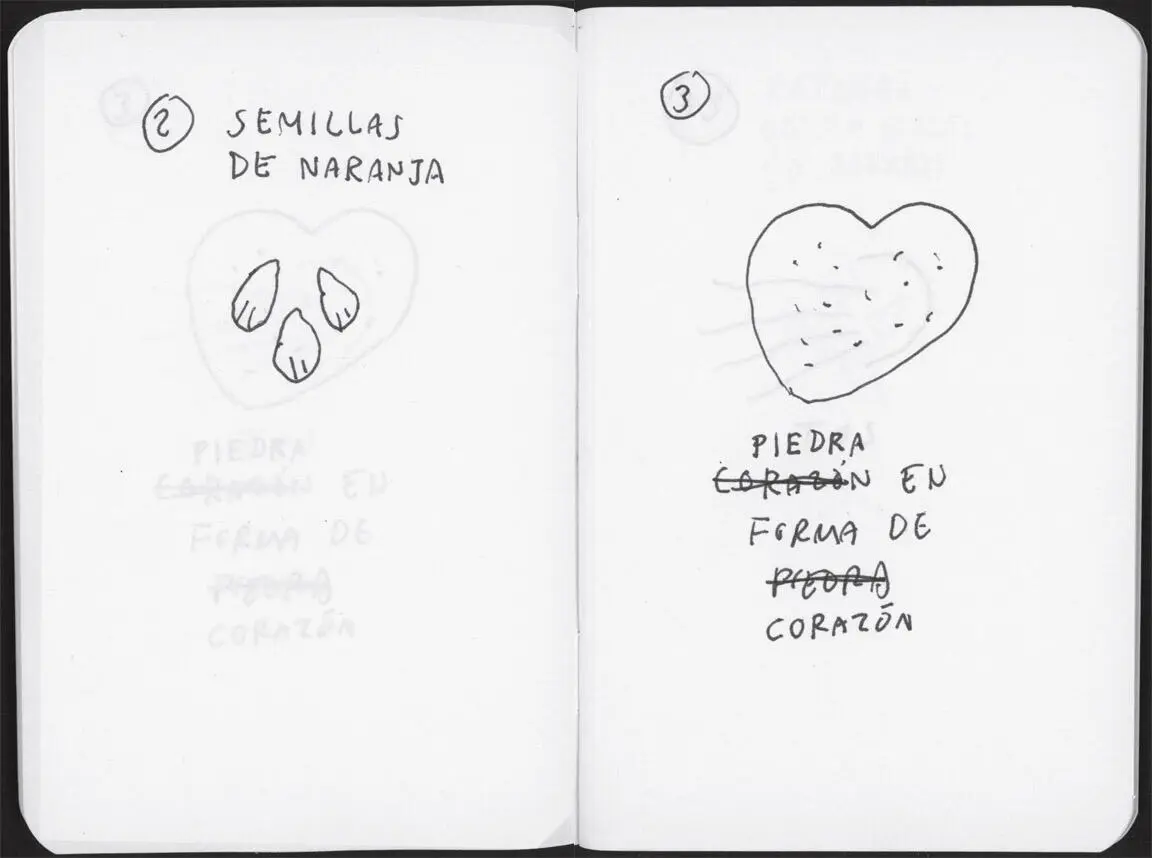 2
SEMILLAS
DE NARANJA
3
PIEDRA
CORAZÓN EN
FORMA DE
PIEDRA
CORAZÓN